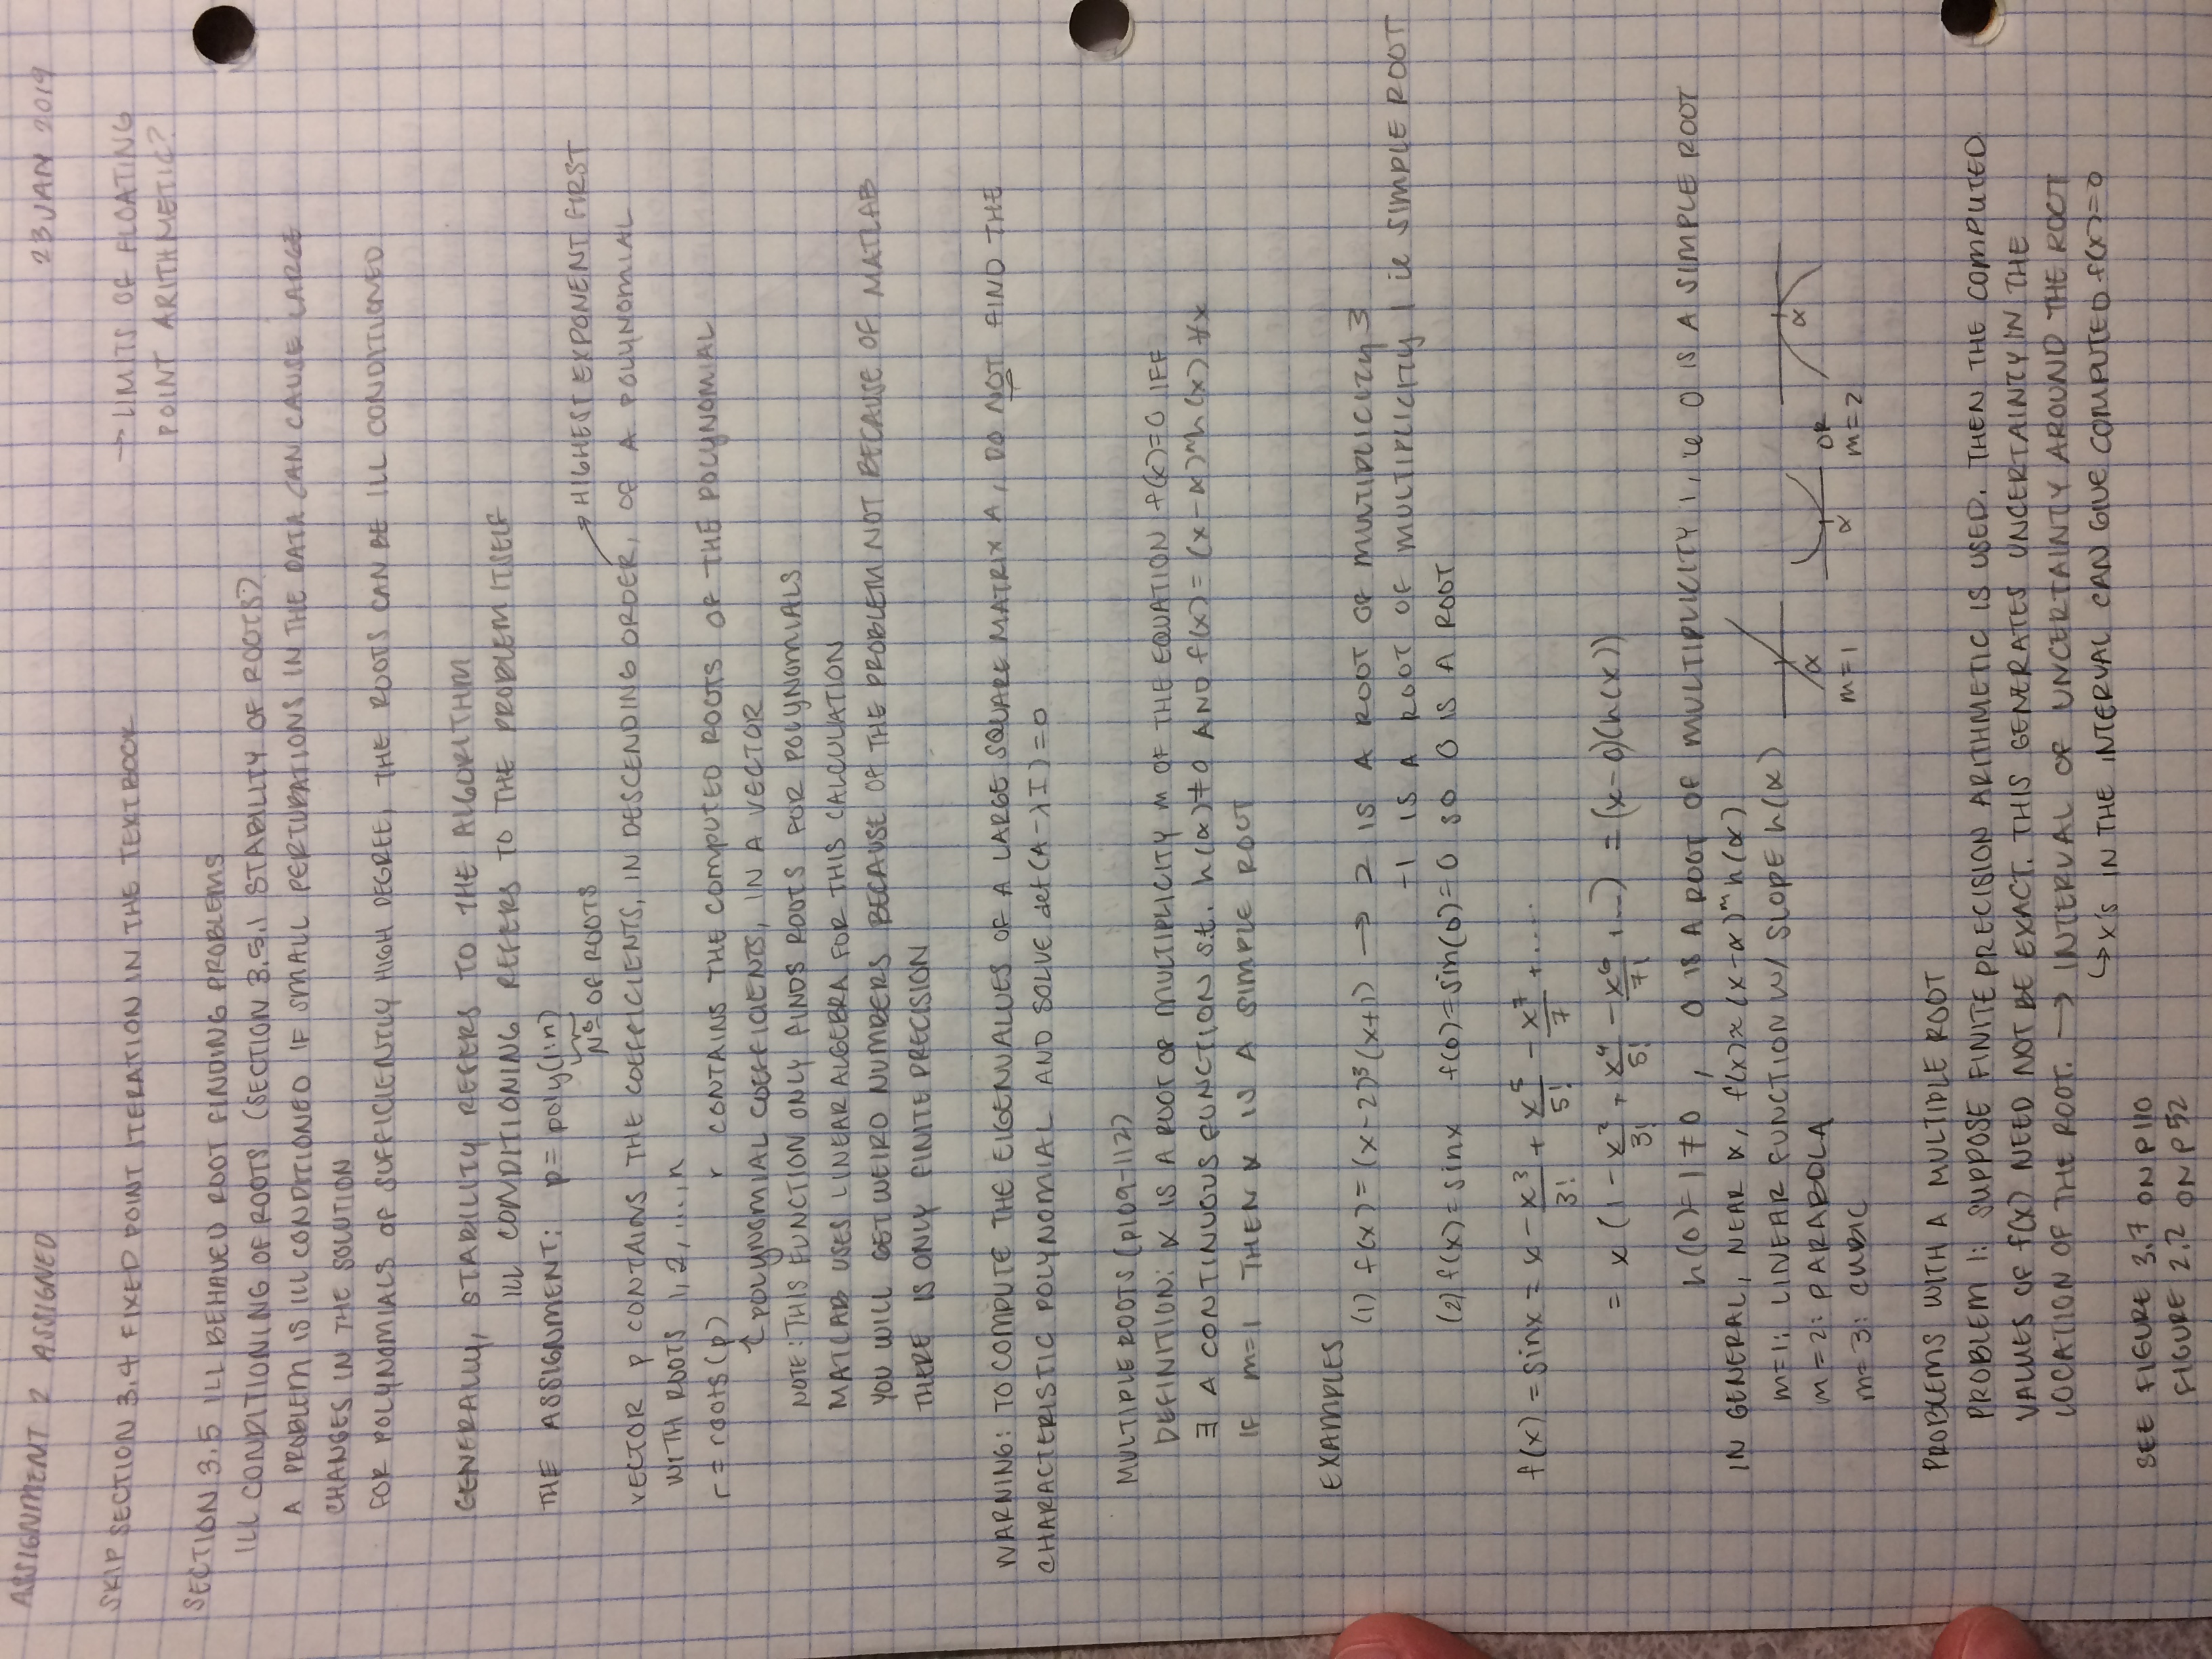 ASSIGNMENT 2 ASSIGNED
23 JAN 2019
SKIP SECTION 3.4 FIXED POINT ITERATION IN THE TEXTBOOK
→ LIMITS OF FLOATING
POINT ARITHMETIC?
SECTION 3.5 ILL BEHAVED ROOT FINDING PROBLEMS
ILL CONDITIONING OF ROOTS (SECTION 3.5.1 STABILITY OF ROOTS?)
A PROBLEM IS ILL CONDITIONED IF SMALL PERTUBATIONS IN THE DATA CAN CAUSE LARGE
CHANGES IN THE SOLUTION
FOR POLYNOMIALS OF SUFFICIENTLY HIGH DEGREE, THE ROOTS CAN BE ILL CONDITIONED
GENERALLY, STABILITY REFERS TO THE ALGORITHM
ILL CONDITIONING REFERS TO THE PROBLEM ITSELF
THE ASSIGNMENT: p = poly(1:n)
Nº OF ROOTS
→ HIGHEST EXPONENT FIRST
VECTOR p CONTAINS THE COEFFICIENTS, IN DESCENDING ORDER, OF A POLYNOMIAL
WITH ROOTS 1, 2, ..., n
r = roots(p) r CONTAINS THE COMPUTED ROOTS OF THE POLYNOMIAL
↑ POLYNOMIAL COEFFICIENTS, IN A VECTOR
NOTE: THIS FUNCTION ONLY FINDS ROOTS FOR POLYNOMIALS
MATLAB USES LINEAR ALGEBRA FOR THIS CALCULATION
YOU WILL GET WEIRD NUMBERS BECAUSE OF THE PROBLEM NOT BECAUSE OF MATLAB
THERE IS ONLY FINITE PRECISION
WARNING: TO COMPUTE THE EIGENVALUES OF A LARGE SQUARE MATRIX A, DO NOT FIND THE
CHARACTERISTIC POLYNOMIAL AND SOLVE det(A-λI)=0
MULTIPLE ROOTS (p109-112)
DEFINITION: α IS A ROOT OF MULTIPLICITY m OF THE EQUATION f(x)=0 IFF
∃ A CONTINUOUS FUNCTION s.t. h(α)≠0 AND f(x) = (x-α)^m h(x) ∀x
IF m=1 THEN α IS A SIMPLE ROOT
EXAMPLES
(1) f(x) = (x-2)³(x+1) → 2 IS A ROOT OF MULTIPLICITY 3
-1 IS A ROOT OF MULTIPLICITY 1 ie SIMPLE ROOT
(2) f(x) = sinx f(0)=sin(0)=0 so 0 IS A ROOT
f(x) = sinx = x - x³/3! + x⁵/5! - x⁷/7 + ....
= x (1 - x²/3! + x⁴/5! - x⁶/7! + ...) = (x-0)(h(x))
h(0)=1≠0, 0 IS A ROOT OF MULTIPLICITY 1, ie 0 IS A SIMPLE ROOT
IN GENERAL, NEAR α, f(x)≈(x-α)^m h(α)
m=1: LINEAR FUNCTION W/ SLOPE h(α)
m=2: PARABOLA
m=3: CUBIC
α
m=1
α
OR
m=2
α
PROBLEMS WITH A MULTIPLE ROOT
PROBLEM 1: SUPPOSE FINITE PRECISION ARITHMETIC IS USED. THEN THE COMPUTED
VALUES OF f(x) NEED NOT BE EXACT. THIS GENERATES UNCERTAINTY IN THE
LOCATION OF THE ROOT. → INTERVAL OF UNCERTAINTY AROUND THE ROOT
↳ x's IN THE INTERVAL CAN GIVE COMPUTED f(x)=0
SEE FIGURE 3.7 ON P110
FIGURE 2.2 ON P52